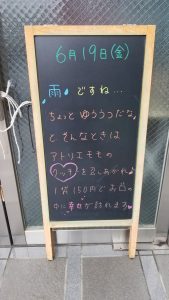 6月19日(金)
雨ですね…
ちょっとゆううつだな
とそんなときは
アトリエモモの
クッキー を召しあがれ♪
1袋150円でお口の
中に幸せが訪れます